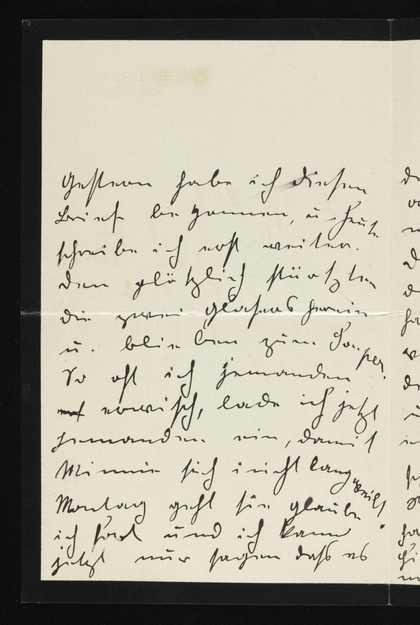 Gestern habe ich diesen
Brief begonnen, u. heute
schreibe ich erst weiter.
Den plötzlich stürzten
die zwei Glasers herein
u. blieben zum Souper.
So oft ich jemanden
erwisch, lade ich jetzt
jemanden ein, damit
Minnie sich nicht langweilt.
Montag geht sie glaube
ich fort und ich kann
jetzt nur sagen daß es